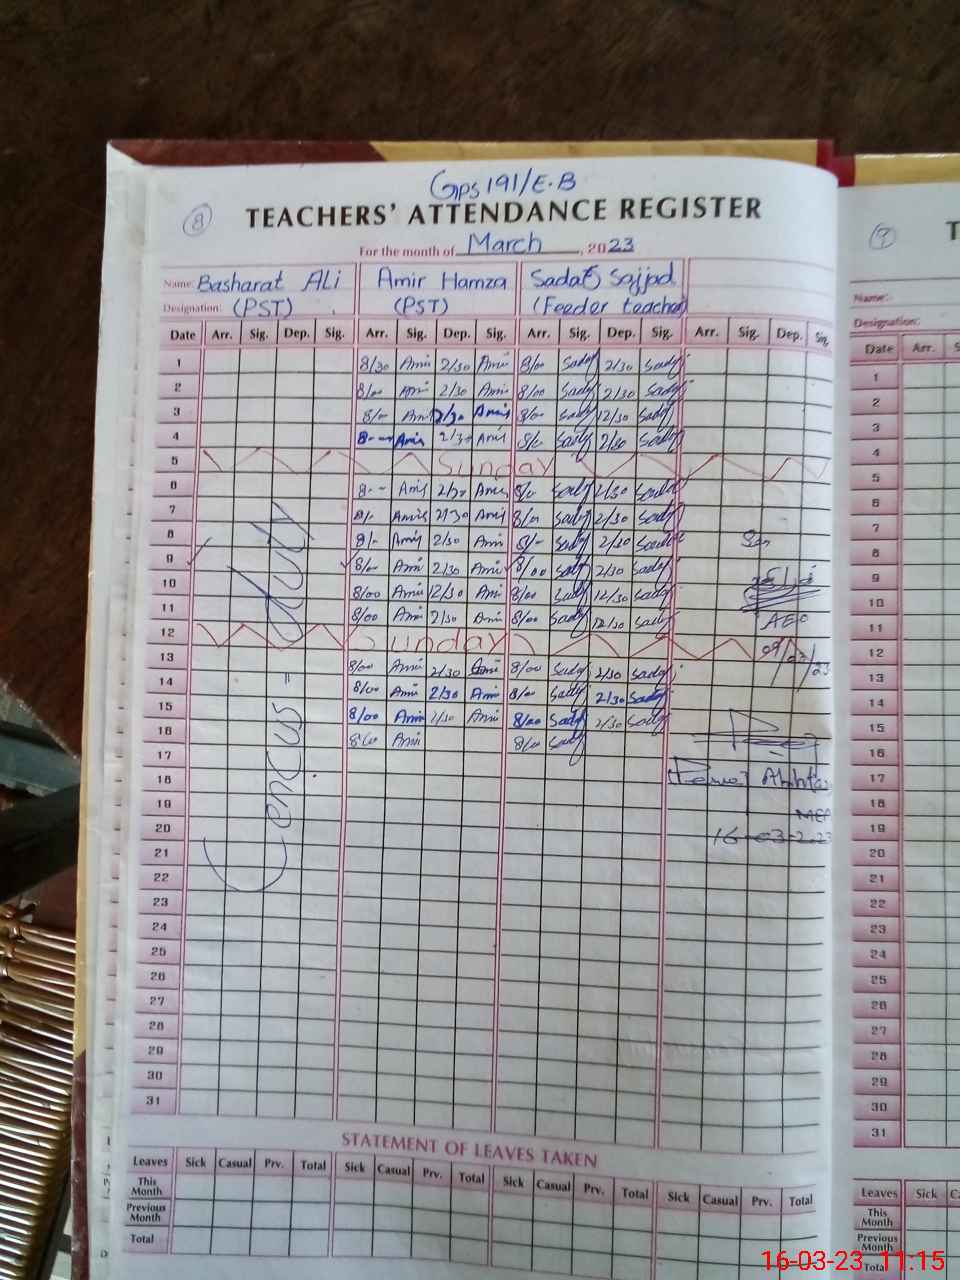 GPS 191/E.B
8
TEACHERS' ATTENDANCE REGISTER
For the month of March, 2023
Name: Basharat Ali Amir Hamza Sadat Sajjad
Designation: (PST) (PST) (Feeder teacher)
Date Arr. Sig. Dep. Sig. Arr. Sig. Dep. Sig. Arr. Sig. Dep. Sig. Arr. Sig. Dep. Sig.
1 8/30 Amir 2/30 Amir 8/00 Sady 2/30 Sady
2 8/00 Amir 2/30 Amir 8/00 Sady 2/30 Sady
3 8/- Amir 12/30 Amir 8/00 Sady 12/30 Sady
4 8-- Amir 2/30 Amir 8/0 Sady 2/30 Sady
5 Sunday
6 8-- Amir 2/30 Amir 8/0 Sady 2/30 Sady
7 8/- Amir 2/30 Amir 8/00 Sady 2/30 Sady
8 8/- Amir 2/30 Amir 8/- Sady 2/30 Sady
9 8/- Amir 2/30 Amir 8/00 Sady 2/30 Sady
10 8/00 Amir 12/30 Amir 8/00 Sady 12/30 Sady
11 8/00 Amir 2/30 Amir 8/00 Sady 12/30 Sady
AEO
12 Sunday
09/03/23
13 8/00 Amir 2/30 Amir 8/00 Sady 2/30 Sady
14 8/00 Amir 2/30 Amir 8/00 Sady 2/30 Sady
15 8/00 Amir 2/30 Amir 8/00 Sady 2/30 Sady
16 8/00 Amir 8/00 Sady
17
18
Akhtar
19
MEA
20
16-03-2023
21
22
23
24
25
26
27
28
29
30
31
Cencus duty
STATEMENT OF LEAVES TAKEN
Leaves Sick Casual Prv. Total Sick Casual Prv. Total Sick Casual Prv. Total Sick Casual Prv. Total
This Month
Previous Month
Total
9
T
Name:
Designation:
Date Arr.
1
2
3
4
5
6
7
8
9
10
11
12
13
14
15
16
17
18
19
20
21
22
23
24
25
26
27
28
29
30
31
Leaves Sick
This Month
Previous Month
Total
16-03-23 11:15